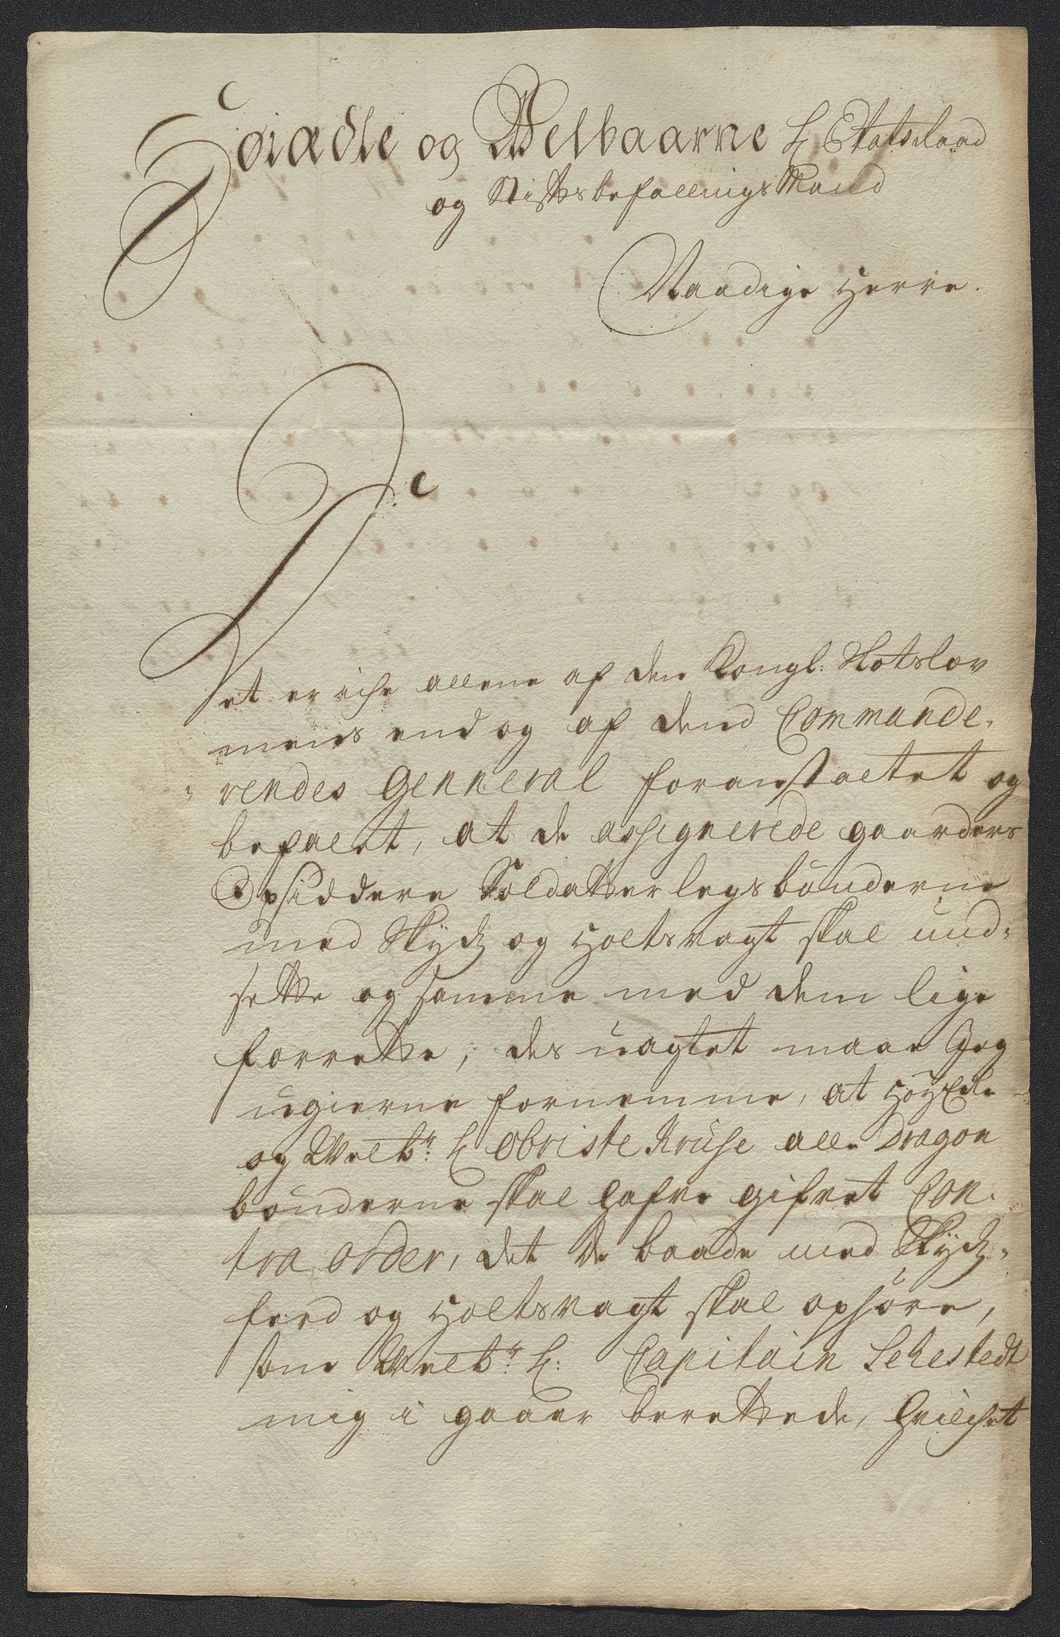 Høiædle og Welbaarne H Etatsraad
og Stiftsbefallings Mand
Naadige Herre.
Det er iche allene af den Kongl: Slotslov
mens end og af dend Commande-
rendes Genneral foranstaltet og
befalet, at de assignerede gaarders
Opsiddere Soldatter legsbønderne
med Skydz og Holtsvagt skal und-
sette og samme med dem lige
forrette, des uagtet maae Jeg
ugierne fornemme, at HøyEdle
og Welb.r H Obriste Kruse alle Dragon
bønderne skal hafve gifvet Con-
tra order, det de baade med Skydz-
ferd og Holtsvagt skal ophøre,
som Welb.r H: Capitain Sehestedt
mig i gaaer berettede, hvilchet